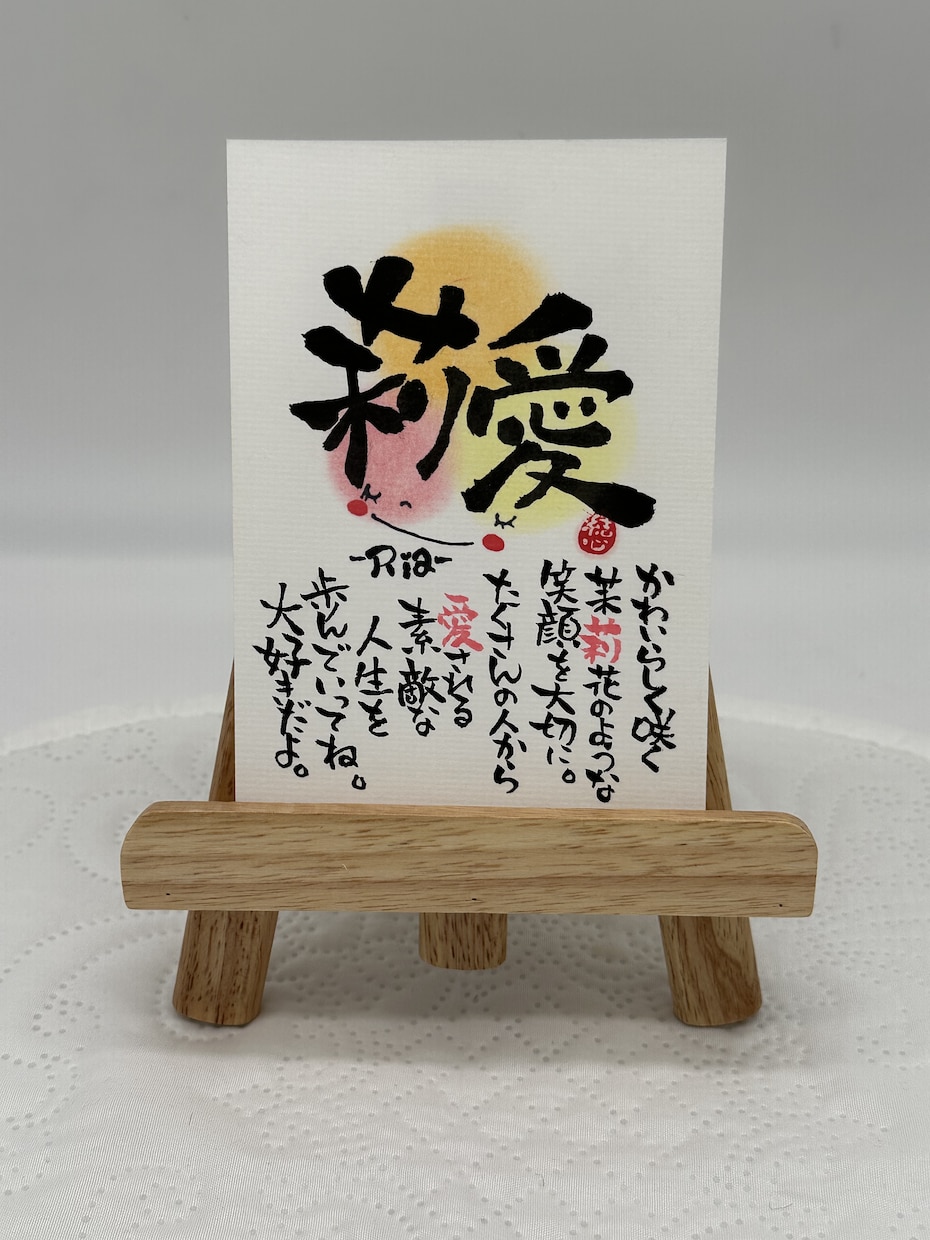 莉愛
-Ria-
かわいらしく咲く
茉莉花のような
笑顔を大切に。
たくさんの人から
愛される
素敵な
人生を
歩んでいってね。
大好きだよ。
結心